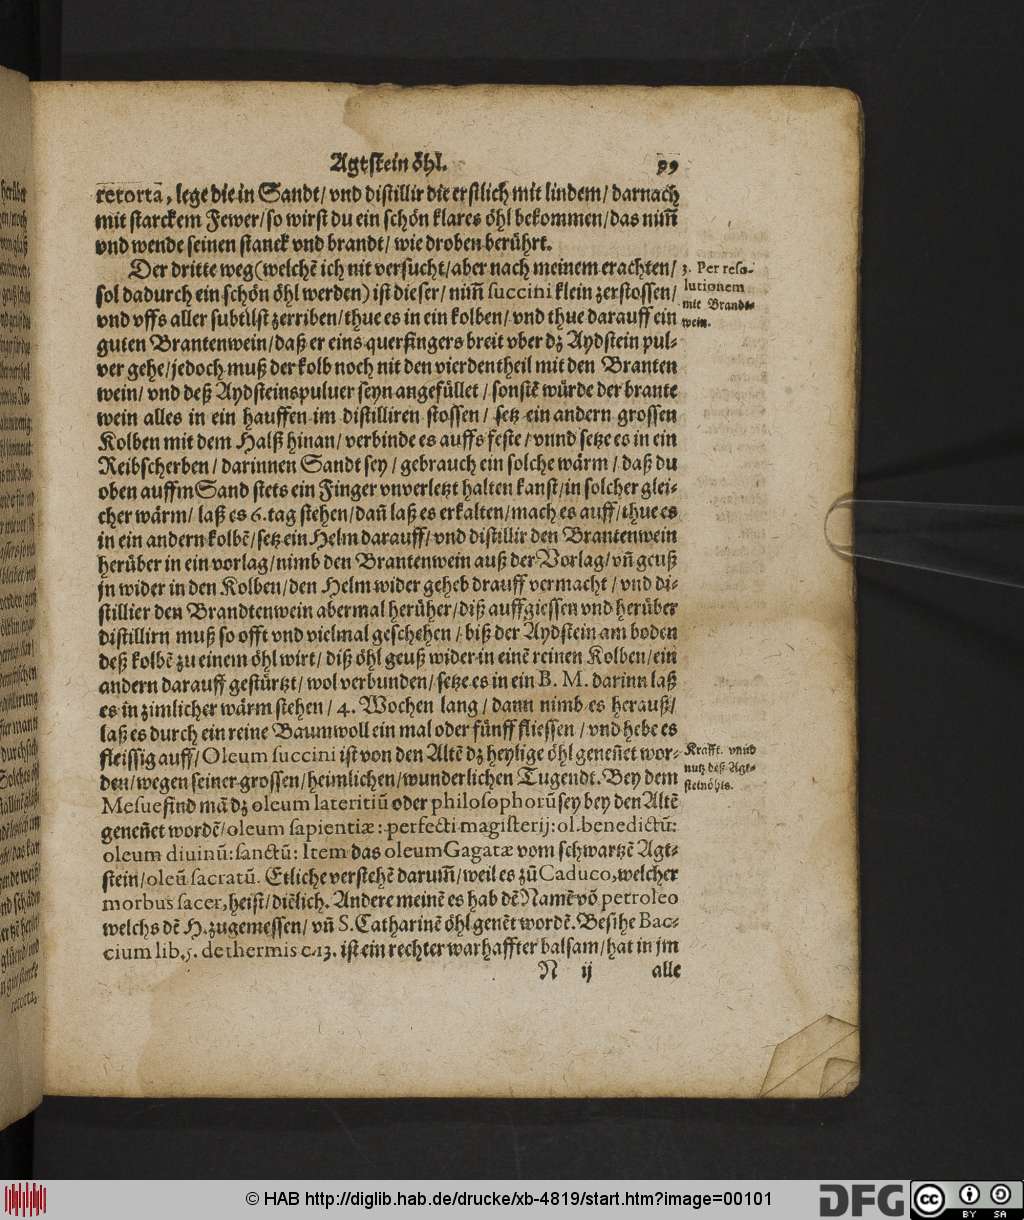 Agtstein öhl. 99
retortā, lege die in Sandt/ vnd distillir die erstlich mit lindem/ darnach
mit starckem Fewer/ so wirst du ein schön klares öhl bekommen/ das nim̃
vnd wende seinen stanck vnd brandt/ wie droben berührt.
Der dritte weg (welchē ich nit versucht/ aber nach meinem erachten/
sol dadurch ein schön öhl werden) ist dieser/ nim̃ succini klein zerstossen/
vnd vffs aller subtilst zerriben/ thue es in ein kolben/ vnd thue darauff ein
guten Brantenwein/ daß er eins querfingers breit vber dz Aydstein pul-
ver gehe/ jedoch muß der kolb noch nit den vierdentheil mit den Branten
wein/ vnd deß Aydsteinspuluer seyn angefüllet/ sonstē würde der brante
wein alles in ein hauffen im distilliren stossen/ setz ein andern grossen
Kolben mit dem Halß hinan/ verbinde es auffs feste/ vnnd setze es in ein
Reibscherben/ darinnen Sandt sey/ gebrauch ein solche wärm/ daß du
oben auffm Sand stets ein Finger vnverletzt halten kanst/ in solcher glei-
cher wärm/ laß es 6. tag stehen/ dañ laß es erkalten/ mach es auff/ thue es
in ein andern kolbē/ setz ein Helm darauff/ vnd distillir den Brantenwein
herüber in ein vorlag/ nimb den Brantenwein auß der Vorlag/ vñ geuß
jn wider in den Kolben/ den Helm wider geheb drauff vermacht/ vnd di-
stillier den Brandtenwein abermal herüher/ diß auffgiessen vnd herüber
distillirn muß so offt vnd vielmal geschehen/ biß der Aydstein am boden
deß kolbē zu einem öhl wirt/ diß öhl geuß wider in einē reinen Kolben/ ein
andern darauff gestürtzt/ wol verbunden/ setze es in ein B. M. darinn laß
es in zimlicher wärm stehen/ 4. Wochen lang/ dann nimb es herauß/
laß es durch ein reine Baumwoll ein mal oder fünff fliessen/ vnd hebe es
fleissig auff/ Oleum succini ist von den Altē dz heylige öhl geneñet wor-
den/ wegen seiner grossen/ heimlichen/ wunderlichen Tugendt. Bey dem
Mesue sind mā dz oleum lateritiū oder philosophorū sey bey den Altē
geneñet wordē/ oleum sapientiæ: perfecti magisterij: ol. benedictū:
oleum diuinū: sanctū: Item das oleum Gagatæ vom schwartzē Agt-
stein/ oleū sacratū. Etliche verstehē darum̃/ weil es zū Caduco, welcher
morbus sacer, heist/ diēlich. Andere meinē es hab dē Namē vō petroleo
welchs dē H. zugemessen/ vñ S. Catharinē öhl genēt wordē. Besihe Bac-
cium lib. 5. de thermis c. 13. ist ein rechter warhaffter balsam/ hat in jm
N ij alle
3. Per reso-
lutionem
mit Brandt-
wein.
Krafft. vnnd
nutz deß Agt-
steinöhls.
© HAB http://diglib.hab.de/drucke/xb-4819/start.htm?image=00101
DFG
CC BY SA